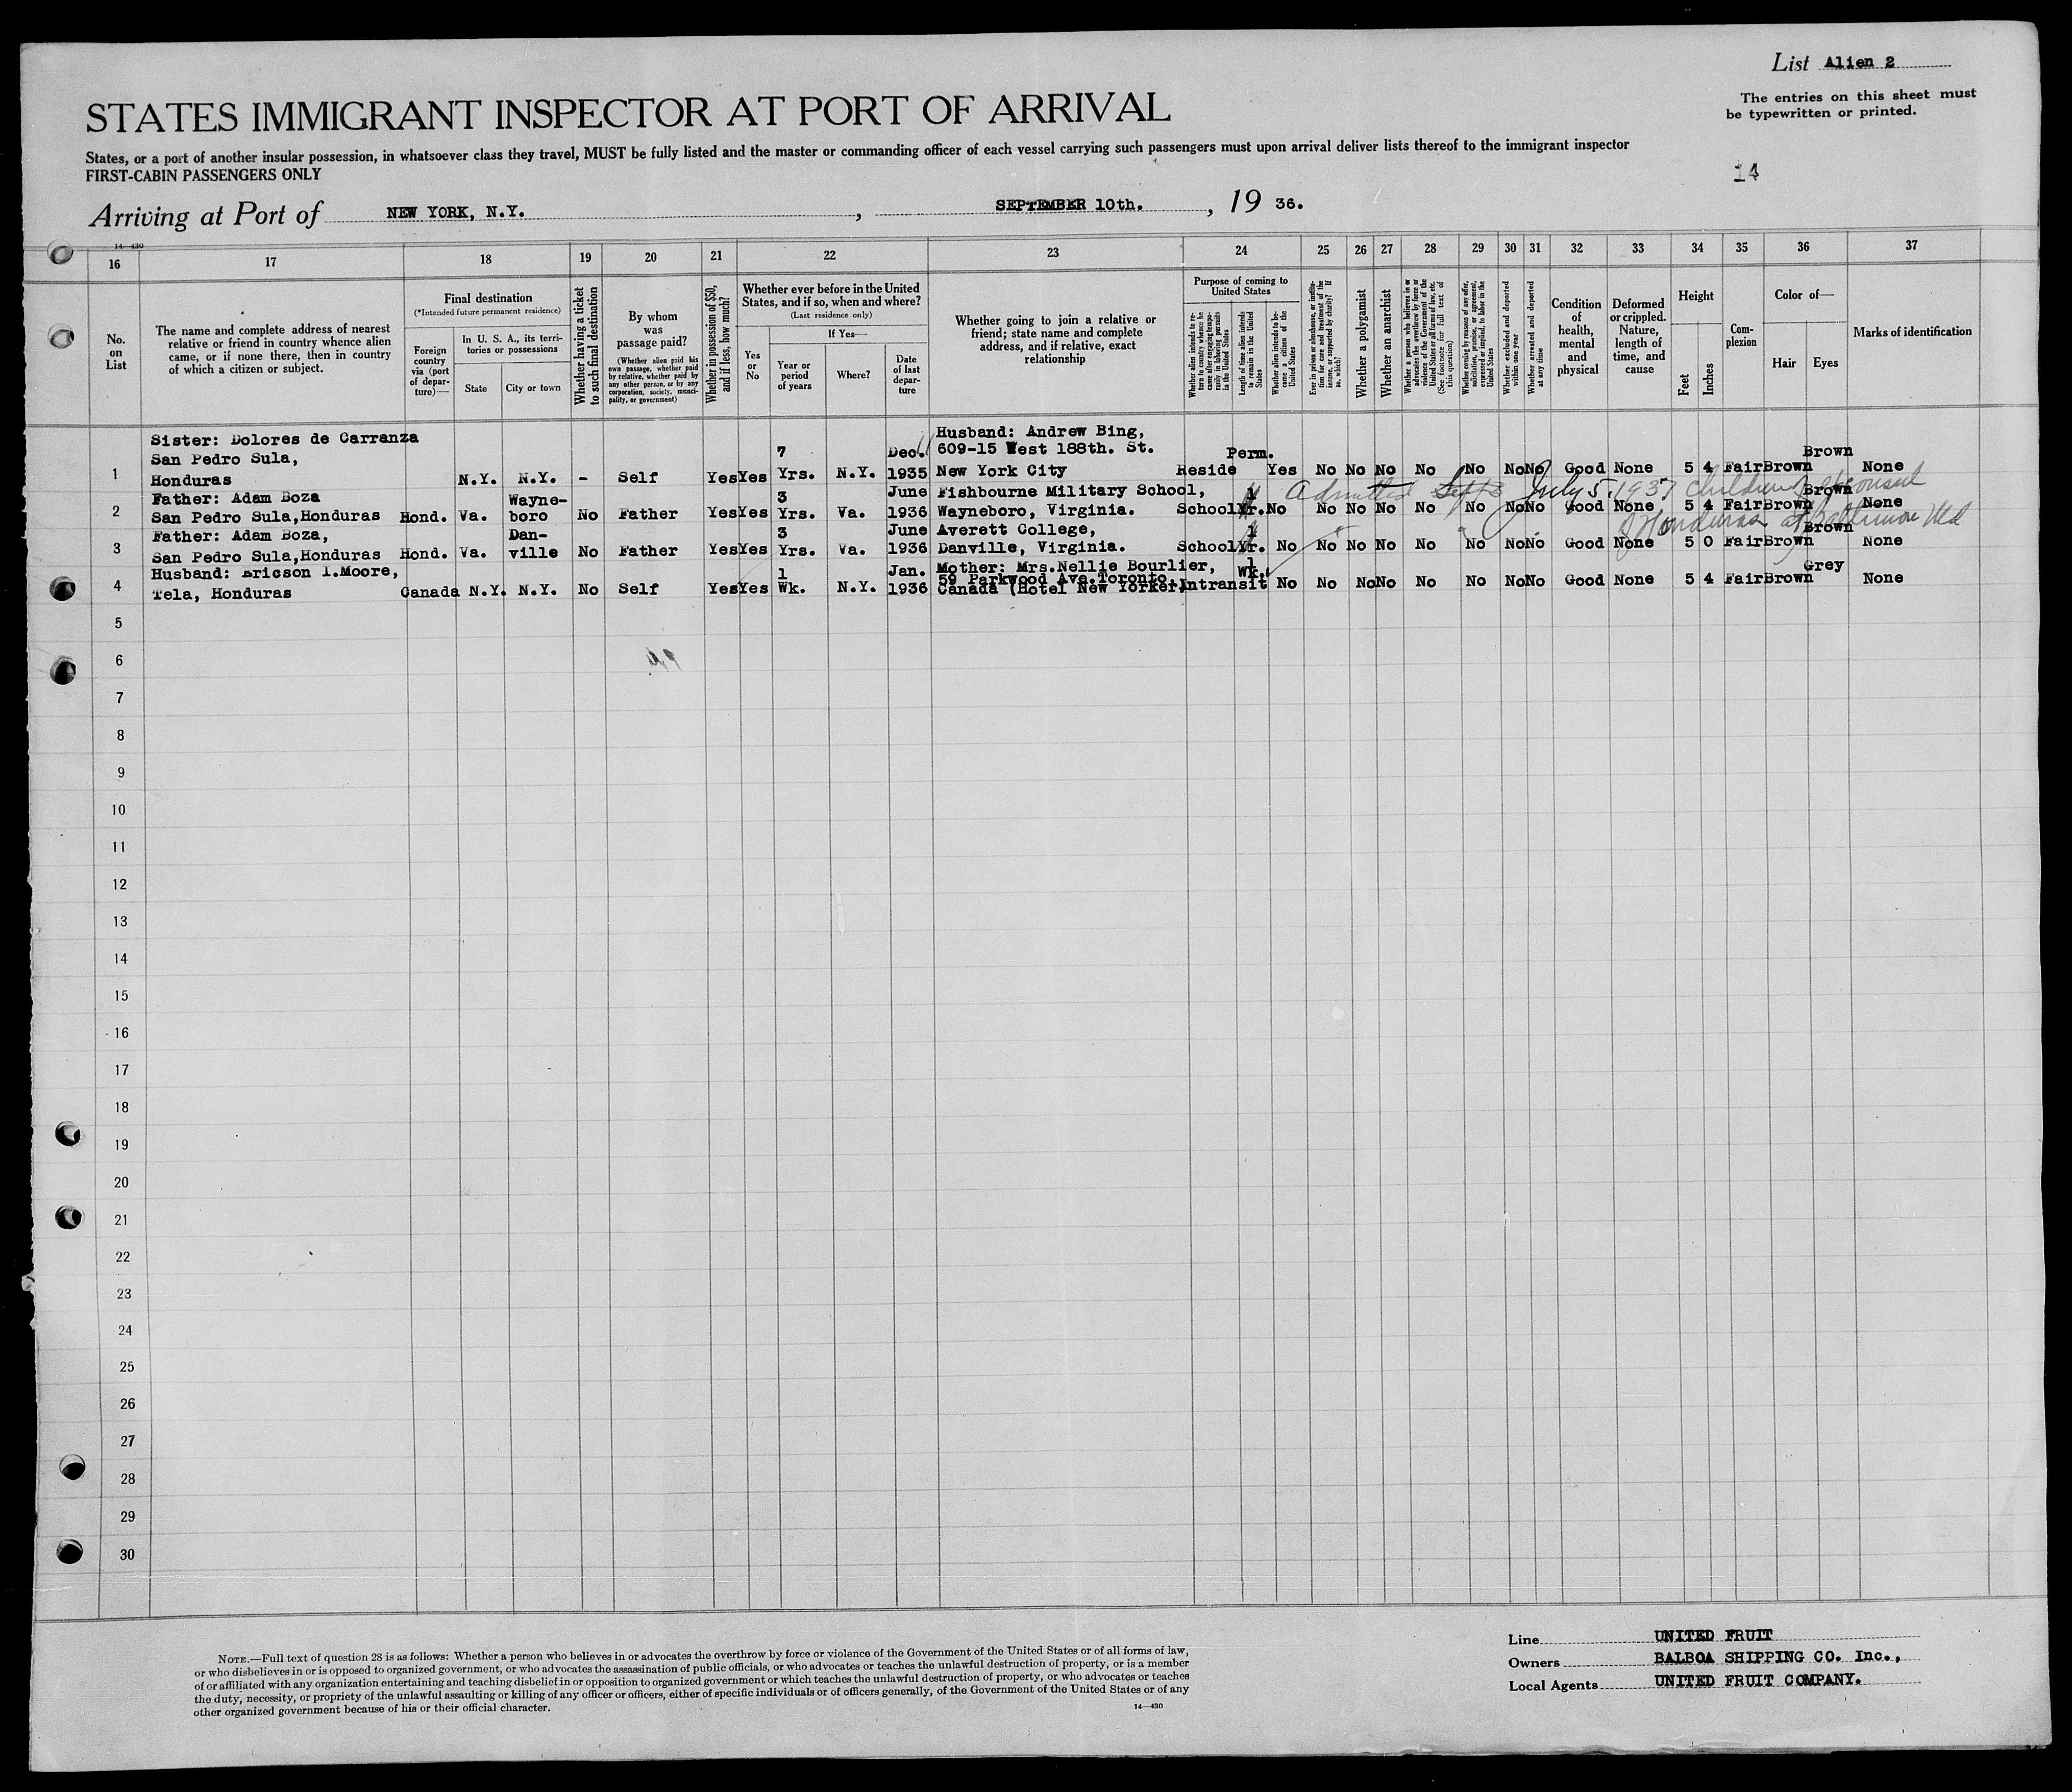 List Alien 2
The entries on this sheet must
be typewritten or printed.
STATES IMMIGRANT INSPECTOR AT PORT OF ARRIVAL
States, or a port of another insular possession, in whatsoever class they travel, MUST be fully listed and the master or commanding officer of each vessel carrying such passengers must upon arrival deliver lists thereof to the immigrant inspector
FIRST-CABIN PASSENGERS ONLY
14
Arriving at Port of NEW YORK, N.Y. , SEPTEMBER 10th. , 19 36.
14—430
16 17 18 19 20 21 22 23 24 25 26 27 28 29 30 31 32 33 34 35 36 37
No. on List
The name and complete address of nearest relative or friend in country whence alien came, or if none there, then in country of which a citizen or subject.
Final destination
(*Intended future permanent residence)
Foreign country via (port of departure)—
In U. S. A., its territories or possessions
State
City or town
Whether having a ticket to such final destination
By whom was passage paid?
(Whether alien paid his own passage, whether paid by relative, whether paid by any other person, or by any corporation, society, municipality, or government)
Whether in possession of $50, and if less, how much?
Whether ever before in the United States, and if so, when and where?
(Last residence only)
Yes or No
If Yes—
Year or period of years
Where?
Date of last departure
Whether going to join a relative or friend; state name and complete address, and if relative, exact relationship
Purpose of coming to United States
Whether alien intends to return to country whence he came after engaging temporarily in laboring pursuits in the United States
Length of time alien intends to remain in the United States
Whether alien intends to become a citizen of the United States
Ever in prison or almshouse, or institution for care and treatment of the insane, or supported by charity? If so, which?
Whether a polygamist
Whether an anarchist
Whether a person who believes in or advocates the overthrow by force or violence of the Government of the United States or all forms of law, etc. (See footnote for full text of this question)
Whether coming by reason of any offer, solicitation, promise, or agreement, expressed or implied, to labor in the United States
Whether excluded and deported within one year
Whether arrested and deported at any time
Condition of health, mental and physical
Deformed or crippled. Nature, length of time, and cause
Height
Feet
Inches
Complexion
Color of—
Hair
Eyes
Marks of identification
1 Sister: Dolores de Carranza San Pedro Sula, Honduras N.Y. N.Y. - Self Yes Yes 7 Yrs. N.Y. Dec. 1935 Husband: Andrew Bing, 609-15 West 188th. St. New York City Reside Perm. Yes No No No No No No No Good None 5 4 Fair Brown Brown None
Admitted July 5, 1937 Children of Consul
of Honduras at Baltimore Md
2 Father: Adam Boza San Pedro Sula,Honduras Hond. Va. Wayne-boro No Father Yes Yes 3 Yrs. Va. June 1936 Fishbourne Military School, Wayneboro, Virginia. School 1 Yr. No No No No No No No No Good None 5 4 Fair Brown Brown None
3 Father: Adam Boza, San Pedro Sula,Honduras Hond. Va. Dan-ville No Father Yes Yes 3 Yrs. Va. June 1936 Averett College, Danville, Virginia. School 1 Yr. No No No No No No No No Good None 5 0 Fair Brown Brown None
4 Husband: Ericson I.Moore, Tela, Honduras Canada N.Y. N.Y. No Self Yes Yes 1 Wk. N.Y. Jan. 1936 Mother: Mrs.Nellie Bourlier, 59 Parkwood Ave.Toronto, Canada (Hotel New Yorker) Intransit 1 Wk. No No No No No No No No Good None 5 4 Fair Brown Grey None
5
6
7
8
9
10
11
12
13
14
15
16
17
18
19
20
21
22
23
24
25
26
27
28
29
30
NOTE.—Full text of question 28 is as follows: Whether a person who believes in or advocates the overthrow by force or violence of the Government of the United States or of all forms of law,
or who disbelieves in or is opposed to organized government, or who advocates the assassination of public officials, or who advocates or teaches the unlawful destruction of property, or is a member
of or affiliated with any organization entertaining and teaching disbelief in or opposition to organized government or which teaches the unlawful destruction of property, or who advocates or teaches
the duty, necessity, or propriety of the unlawful assaulting or killing of any officer or officers, either of specific individuals or of officers generally, of the Government of the United States or of any
other organized government because of his or their official character.
14—430
Line UNITED FRUIT
Owners BALBOA SHIPPING CO. Inc.,
Local Agents UNITED FRUIT COMPANY.